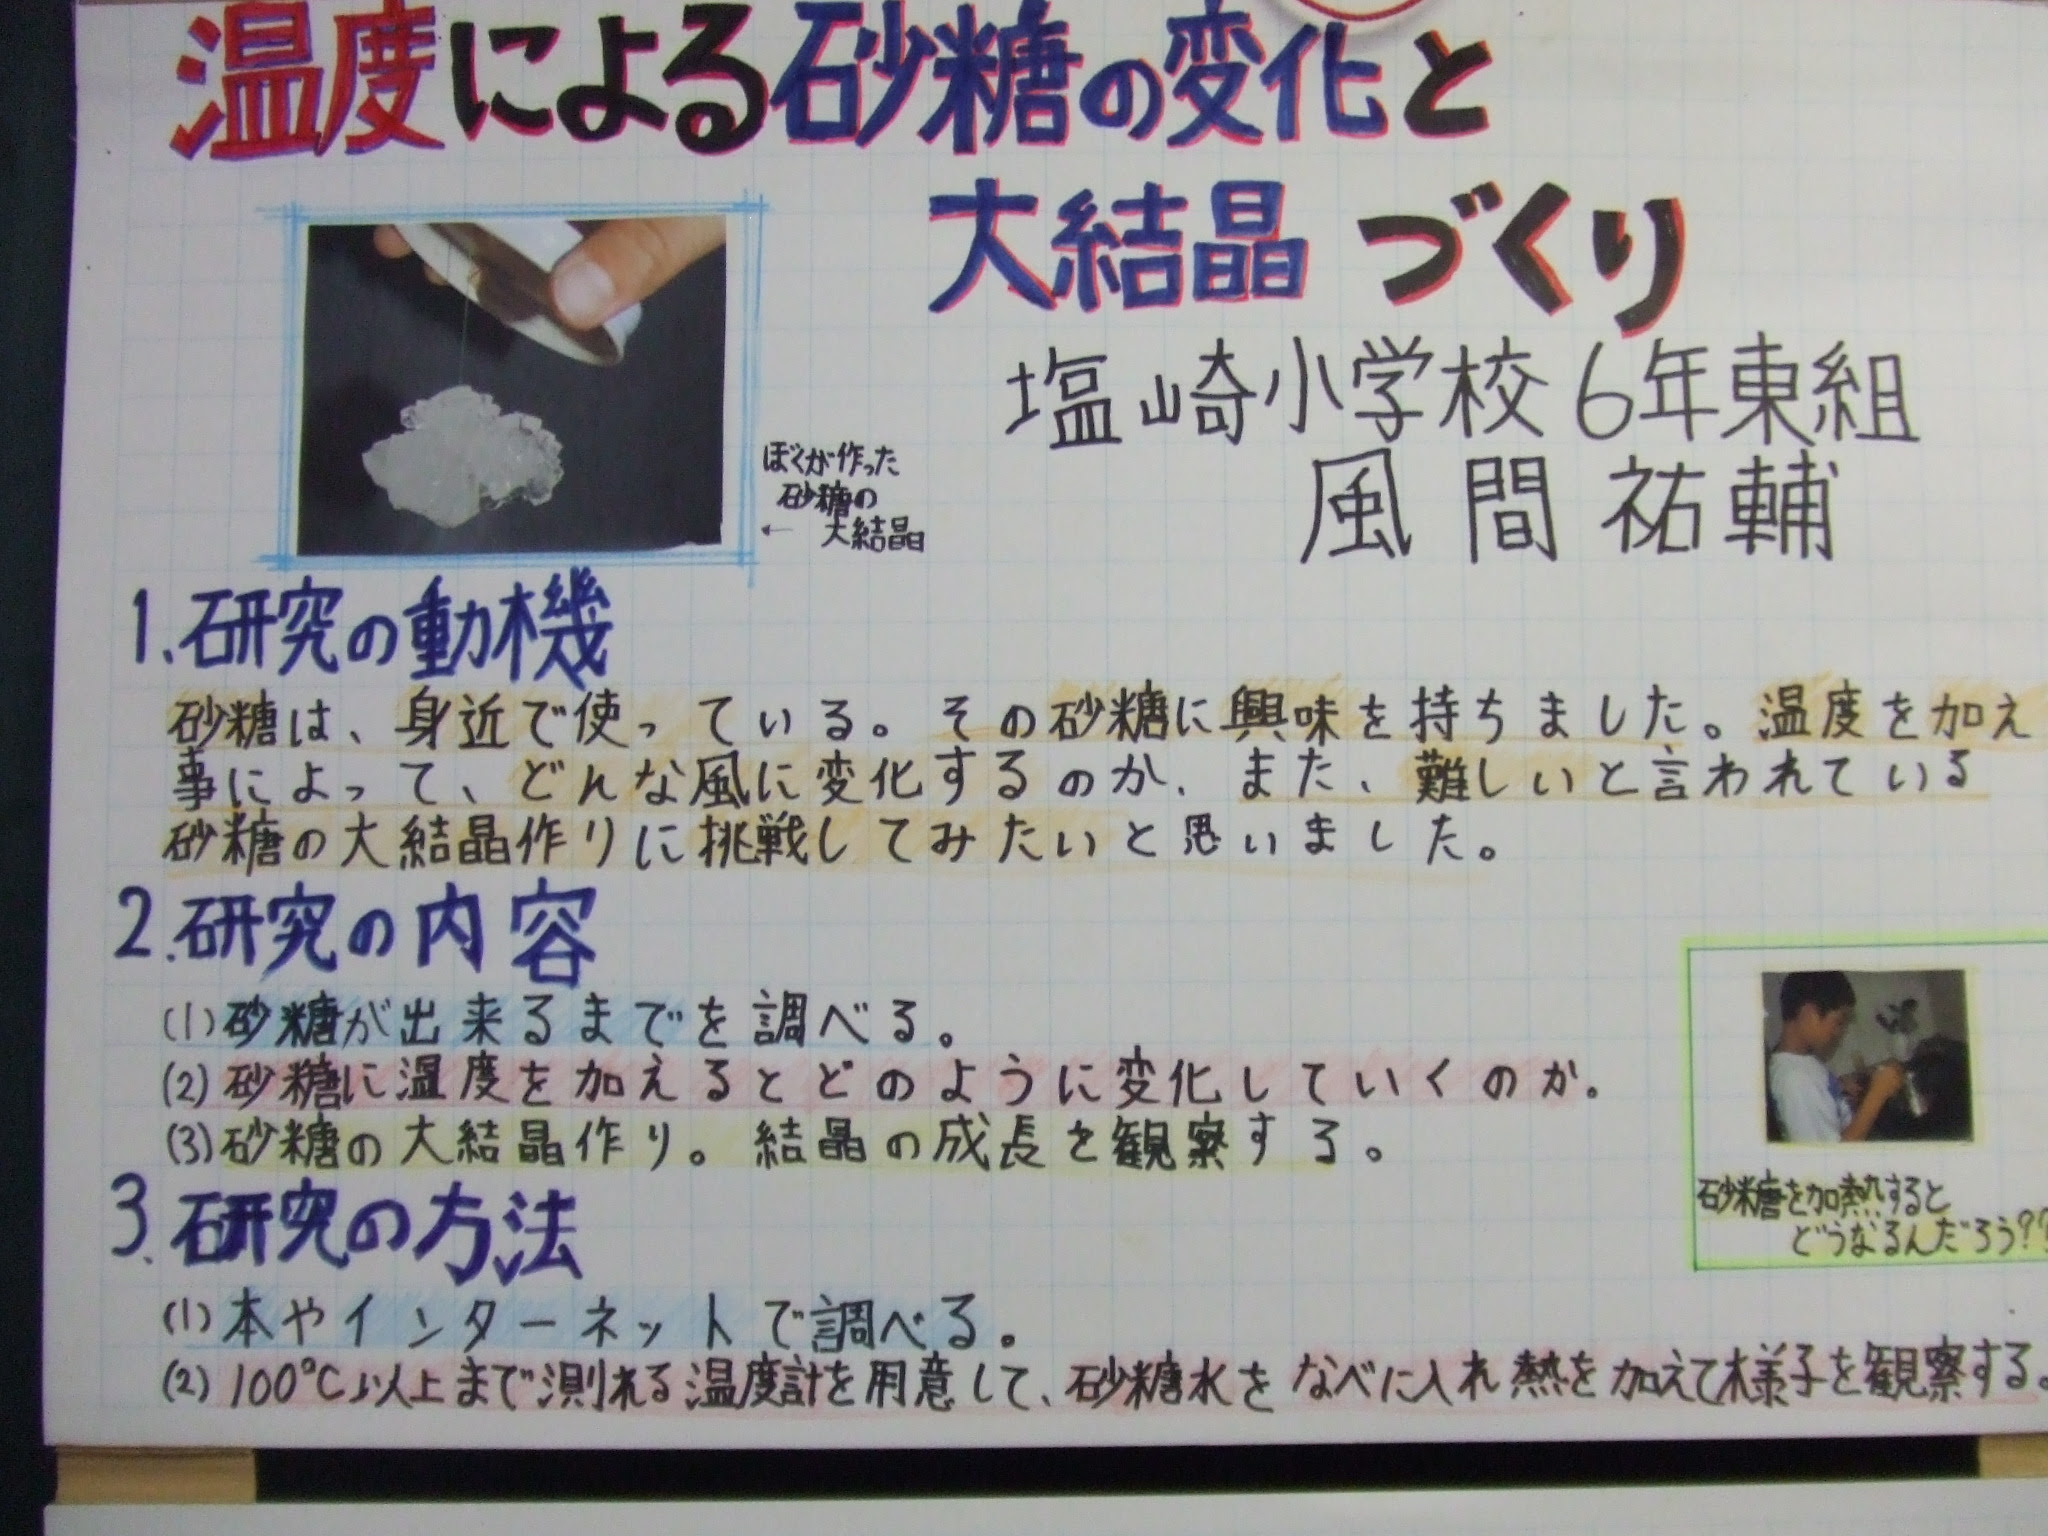 温度による砂糖の変化と
大結晶づくり
塩崎小学校6年東組
風間祐輔
ぼくが作った
砂糖の
← 大結晶
1.研究の動機
砂糖は、身近で使っている。その砂糖に興味を持ちました。温度を加え
事によって、どんな風に変化するのか、また、難しいと言われている
砂糖の大結晶作りに挑戦してみたいと思いました。
2.研究の内容
(1)砂糖が出来るまでを調べる。
(2)砂糖に温度を加えるとどのように変化していくのか。
(3)砂糖の大結晶作り。結晶の成長を観察する。
砂糖を加熱すると
どうなるんだろう??
3.研究の方法
(1)本やインターネットで調べる。
(2)100℃以上まで測れる温度計を用意して、砂糖水をなべに入れ熱を加えて様子を観察する。